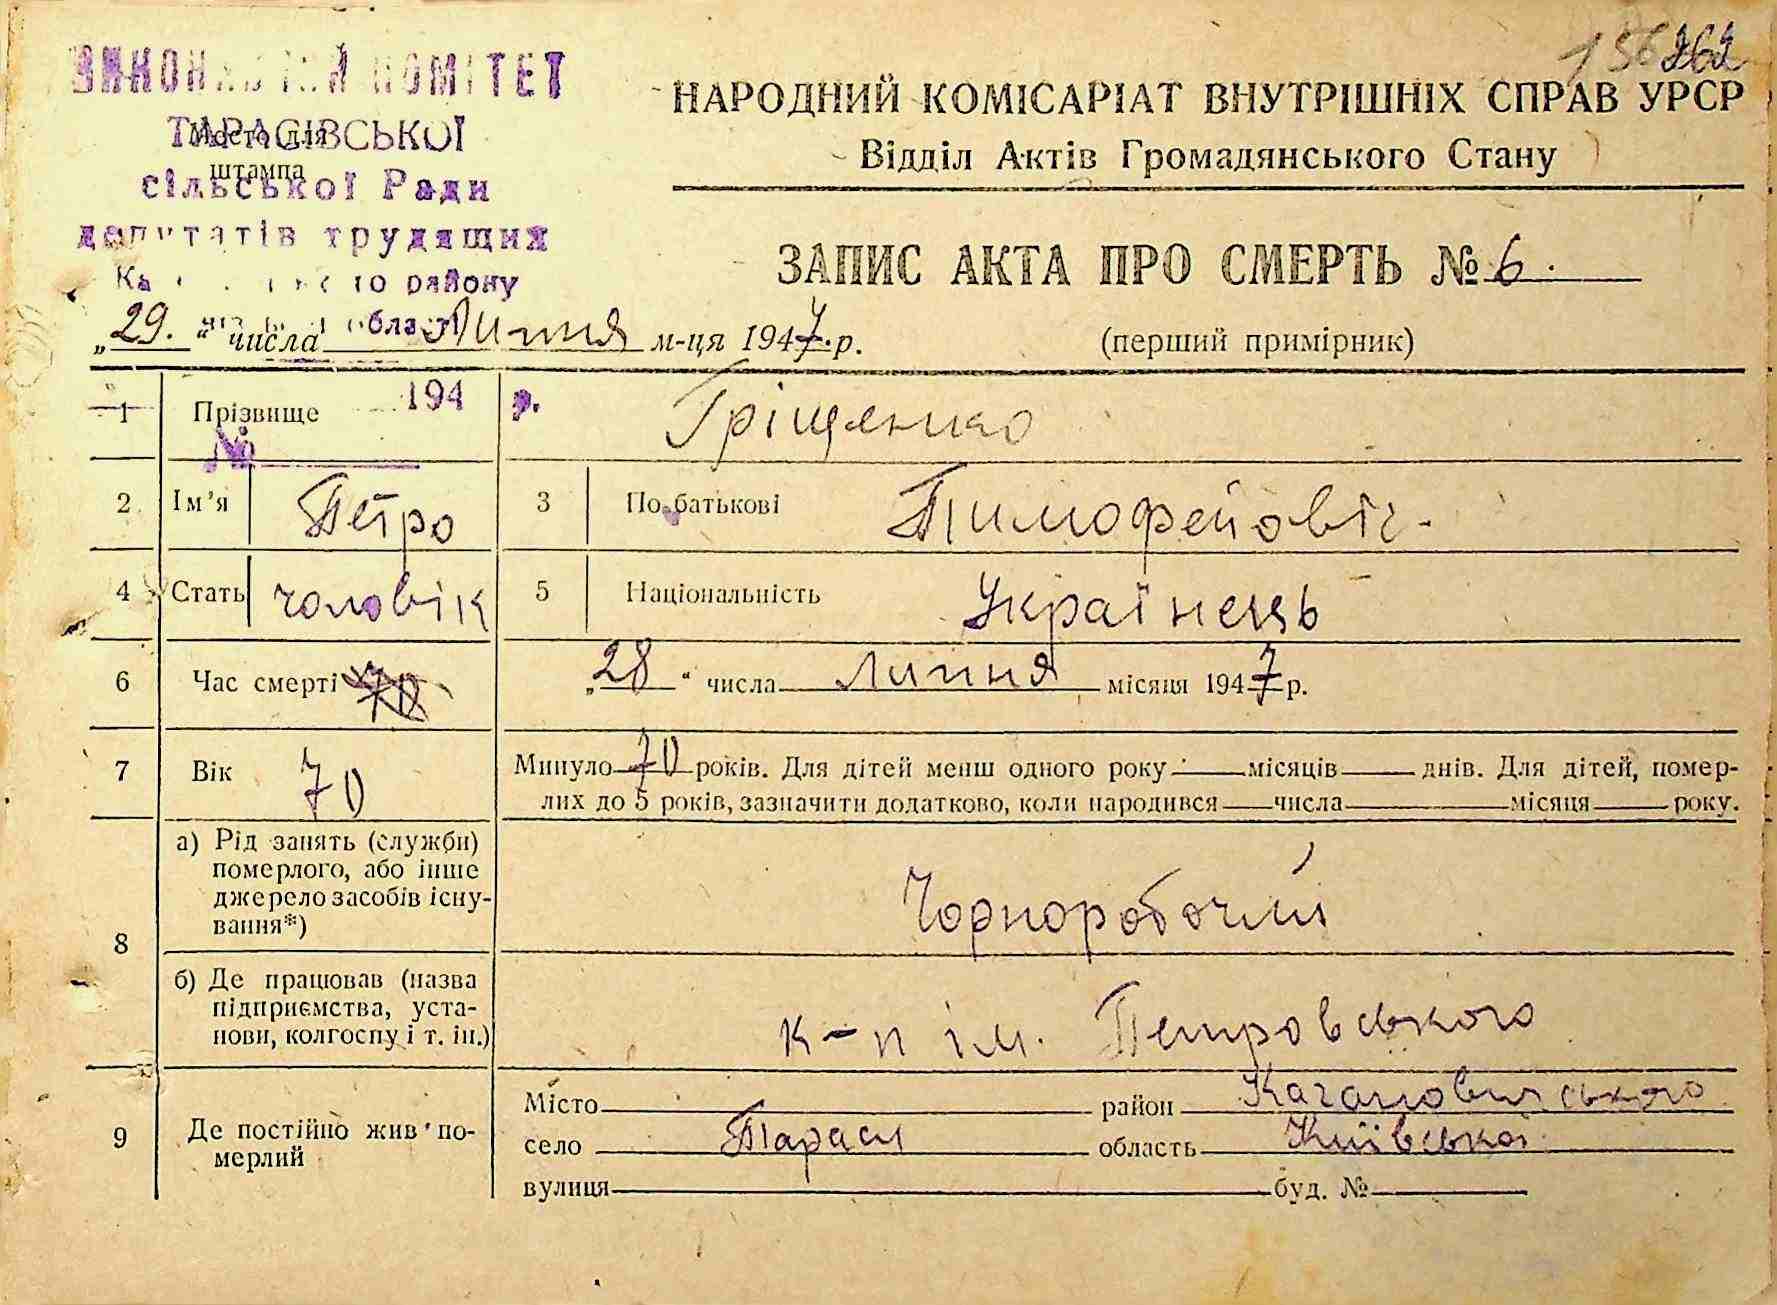 ВИКОНАВЧИЙ КОМІТЕТ
ТАРАСІВСЬКОЇ
Место для
штампа
сільської Ради
депутатів трудящих
району
області
194 р.
№
262
НАРОДНИЙ КОМІСАРІАТ ВНУТРІШНІХ СПРАВ УРСР
Відділ Актів Громадянського Стану
ЗАПИС АКТА ПРО СМЕРТЬ № 6.
„29.“ числа Липня м-ця 1947 р. (перший примірник)
1 Прізвище Гріщенко
2 Ім'я Петро 3 По батькові Тимофейовіч.
4 Стать чоловік 5 Національність Українець
6 Час смерті 70 „28“ числа липня місяця 1947 р.
7 Вік 70 Минуло 70 років. Для дітей менш одного року місяців днів. Для дітей, помер-
лих до 5 років, зазначити додатково, коли народився числа місяця року.
8 а) Рід занять (служби) померлого, або інше джерело засобів існу-вання*) Чорноробочий
б) Де працював (назва підприємства, уста-нови, колгоспу і т. ін.) к-п ім. Петровського
9 Де постійно жив по-мерлий
Місто район Кагановичського
село Тараси область Київської
вулиця буд. №